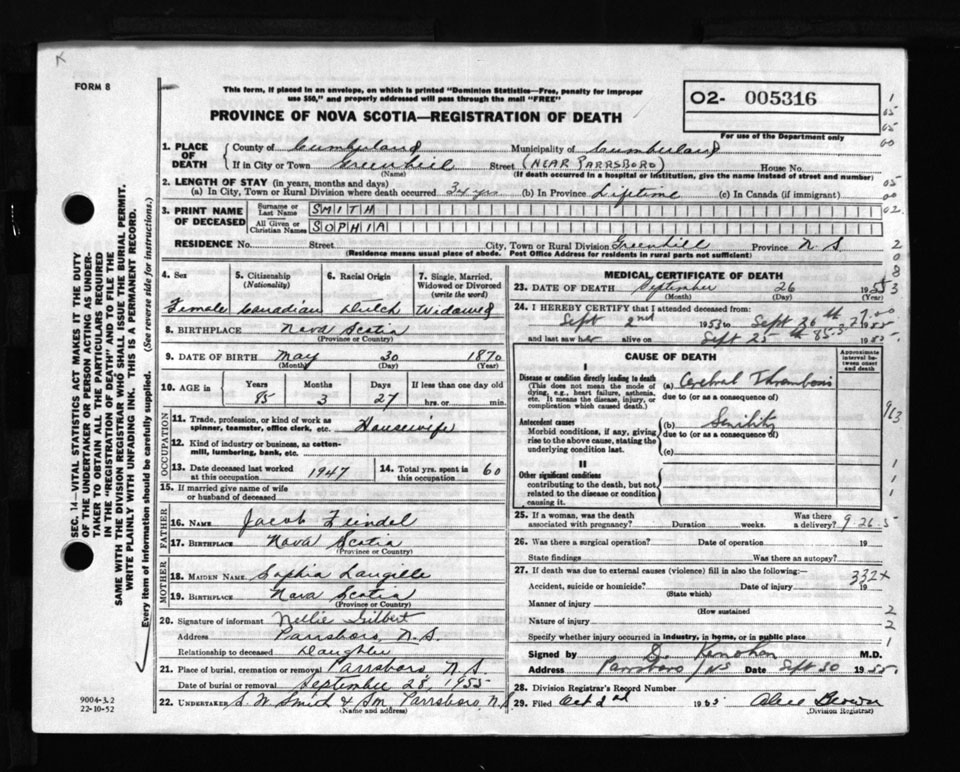 K
FORM 8
This form, if placed in an envelope, on which is printed "Dominion Statistics—Free, penalty for improper
use $50," and properly addressed will pass through the mail "FREE"
PROVINCE OF NOVA SCOTIA—REGISTRATION OF DEATH
O2- 005316
For use of the Department only
1. PLACE OF DEATH { County of Cumberland Municipality of Cumberland
If in City or Town Greenhill Street (NEAR PARRSBORO) House No.
(Name) (If death occurred in a hospital or institution, give the name instead of street and number)
2. LENGTH OF STAY (in years, months and days)
(a) In City, Town or Rural Division where death occurred 34 yrs (b) In Province Lifetime (c) In Canada (if immigrant)
3. PRINT NAME OF DECEASED { Surname or Last Name SMITH
All Given or Christian Names SOPHIA
RESIDENCE No. Street City, Town or Rural Division Greenhill Province N.S
(Residence means usual place of abode. Post Office Address for residents in rural parts not sufficient)
4. Sex Female
5. Citizenship (Nationality) Canadian
6. Racial Origin Dutch
7. Single, Married, Widowed or Divorced (write the word) Widowed
8. BIRTHPLACE Nova Scotia
(Province or Country)
9. DATE OF BIRTH May 30 1870
(Month) (Day) (Year)
10. AGE in Years 85 Months 3 Days 27 If less than one day old hrs. or min.
OCCUPATION
11. Trade, profession, or kind of work as spinner, teamster, office clerk, etc. Housewife
12. Kind of industry or business, as cotten-mill, lumbering, bank, etc.
13. Date deceased last worked at this occupation 1947
14. Total yrs. spent in this occupation 60
15. If married give name of wife or husband of deceased
FATHER
16. NAME Jacob Feindel
17. BIRTHPLACE Nova Scotia
(Province or Country)
MOTHER
18. MAIDEN NAME Sophia Langille
19. BIRTHPLACE Nova Scotia
(Province or Country)
20. Signature of informant Nellie Gilbert
Address Parrsboro, N.S.
Relationship to deceased Daughter
21. Place of burial, cremation or removal Parrsboro N S
Date of burial or removal September 28, 1955
22. UNDERTAKER S. W. Smith & Son Parrsboro, N.S
(Name and address)
MEDICAL CERTIFICATE OF DEATH
23. DATE OF DEATH September 26 1955
(Month) (Day) (Year)
24. I HEREBY CERTIFY that I attended deceased from:
Sept 2nd 1953 to Sept 26th 1955
and last saw her alive on Sept 25th 1955
CAUSE OF DEATH
Approximate interval between onset and death
I
Disease or condition directly leading to death (a) Cerebral Thrombosis
(This does not mean the mode of dying, e.g., heart failure, asthenia, etc. It means the disease, injury, or complication which caused death.)
due to (or as a consequence of)
Antecedent causes (b) Senility
Morbid conditions, if any, giving rise to the above cause, stating the underlying condition last.
due to (or as a consequence of)
(c)
II
Other significant conditions
contributing to the death, but not related to the disease or condition causing it.
25. If a woman, was the death associated with pregnancy? Duration weeks. Was there a delivery? 9-26-5
26. Was there a surgical operation? Date of operation 19
State findings Was there an autopsy?
27. If death was due to external causes (violence) fill in also the following:—
Accident, suicide or homicide? Date of injury 19
(State which)
332x
Manner of injury
(How sustained)
Nature of injury
Specify whether injury occurred in industry, in home, or in public place
Signed by M.D.
Address Parrsboro NS Date Sept 30 1955
28. Division Registrar's Record Number
29. Filed Oct 2nd 1955 Alice Brown
(Division Registrar)
SEC. 14—VITAL STATISTICS ACT MAKES IT THE DUTY
OF THE UNDERTAKER OR PERSON ACTING AS UNDER-
TAKER TO OBTAIN ALL THE PARTICULARS REQUIRED
IN THE "REGISTRATION OF DEATH" AND TO FILE THE
SAME WITH THE DIVISION REGISTRAR WHO SHALL ISSUE THE BURIAL PERMIT.
WRITE PLAINLY WITH UNFADING INK. THIS IS A PERMANENT RECORD.
Every item of information should be carefully supplied. (See reverse side for instructions.)
9004-3.2
22-10-52